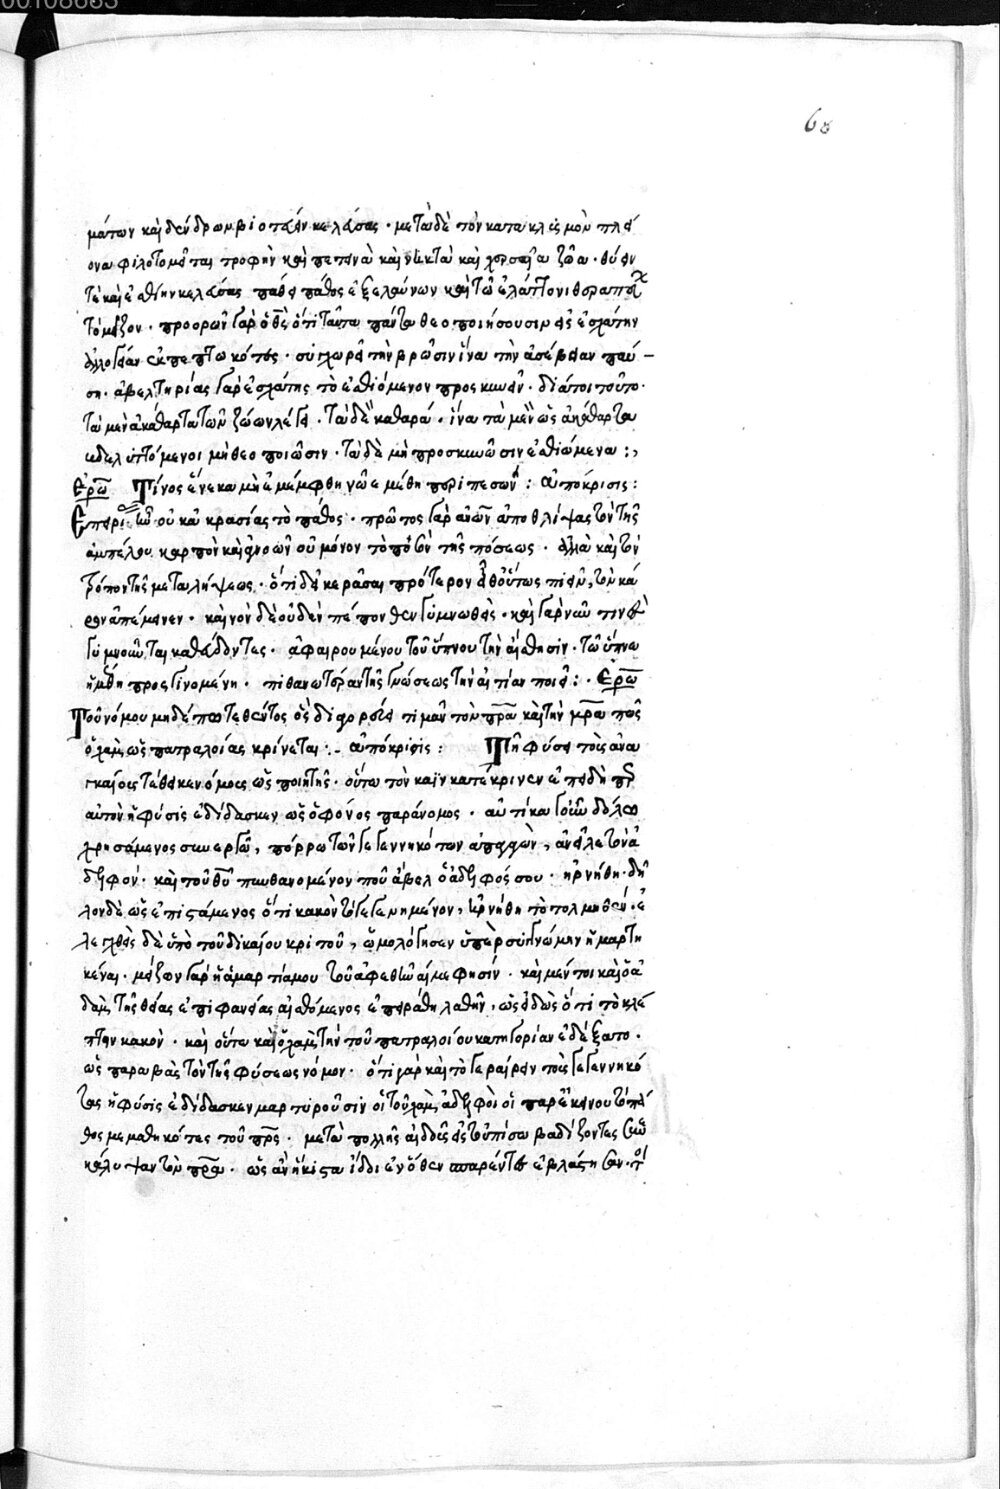 60
μάτων καὶ δένδρων βίοτεύειν κελεύσας · μετὰ δὲ τὸν κατακλυσμὸν πλεί
ονα φιλοτιμεῖται τροφὴν καὶ πετεινὰ καὶ νηκτὰ καὶ χερσαῖα ζῶα · θύειν
τὲ καὶ ἐσθίειν κελεύσας πάθει πάθος ἐξελαύνων καὶ τῶ ἐλάττονι θεραπεύων
τὸ μεῖζον · προορῶν γὰρ ὁ θς ὅτι ταῦτα πάντα θεοποιήσουσιν εἰς ἐσχάτην
ἀλογίαν ἐκπεπτωκότες · συγχωρεῖ τὴν βρῶσιν ἵνα τὴν ἀσέβειαν παύ –
ση · ἀβελτηρίας γὰρ ἐσχάτης τὸ ἐσθιόμενον προσκυνεῖν · διά τοι τοῦτο ·
τὰ μὲν ἀκάθαρτα τῶν ζώων λέγει · τὰ δὲ καθαρά · ἵνα τὰ μὲν ὡς ἀκάθαρτα
βδελυττόμενοι μὴ θεοποιῶσιν · τὰ δὲ μὴ προσκυνῶσιν ἐσθιώμενα :,
Ἐρω Τίνος ἕνεκα μὴ ἐμέμφθη νῶε μέθη περιπεσών : ἀπόκρισις :
Ἀπειρίας ἦν οὐκ ἀκρασίας τὸ πάθος · πρῶτος γὰρ ἀνων ἀποθλίψας τὸν τῆς
ἀμπέλου καρπὸν καὶ ἀγνοῶν οὐ μόνον τὸ ποσὸν τῆς πόσεως · ἀλλὰ καὶ τὸν
τρόπον τῆς μεταλήψεως · ὅτι δεῖ κεράσαι πρότερον εἶθ' οὕτως πιεῖν, τὸν κά
ρον ὑπέμεινεν · καινὸν δὲ οὐδὲν πέπονθεν γυμνωθεὶς · καὶ γὰρ νῦν τινὲς
γυμνοῦνται καθεύδοντες · ἀφαιρουμένου τοῦ ὕπνου τὴν αἴσθησιν · τῶ ὕπνω
ἡ μέθη προσγινομένη · πιθανωτέραν τῆς γυμνώσεως τὴν αἰτίαν ποιεῖ : · Ἐρω
Τοῦ νόμου μηδέπω τεθέντος ὃς διαγορεύει τιμᾶν τὸν πρα καὶ τὴν μρα πῶς
ὁ χὰμ ὡς πατραλοίας κρίνεται : – ἀπόκρισις : Τῆ φύσει τοὺς ἀνα
γκαίους τέθεικεν νόμους ὡς ποιητής · οὕτω τὸν κάϊν κατέκρινεν ἐπειδὴ πρ
αὐτὸν ἡ φύσις ἐδίδασκεν ὡς ὁ φόνος παράνομος · αὐτίκα γοῦν δόλω
χρησάμενος συνεργῶ, πόρρω τῶν γεγεννηκότων ἀπαγαγὼν, ἀνεῖλε τὸν ἀ
δελφόν · καὶ τοῦ θυ πυνθανομένου ποῦ ἄβελ ὁ ἀδελφός σου · ἠρνήθη · δῆ
λον δὲ ὡς ἐπιστάμενος ὅτι κακὸν τὸ γεγενημένον, ἠρνήθη τὸ τολμηθέν · ἐ
λεγχθεὶς δὲ ὑπὸ τοῦ δικαίου κριτοῦ, ὡμολόγησεν ὑπὲρ συγγνώμην ἡμαρτη
κέναι · μείζων γὰρ ἡ ἁμαρτία μου τοῦ ἀφεθῶναί με φησίν · καὶ μέν τοι καὶ ὁ ἀ
δὰμ τῆς θείας ἐπιφανείας αἰσθόμενος ἐπειράθη λαθεῖν, ὡς εἰδὼς ὅτι τὸ κλέ
πτειν κακὸν · καὶ οὕτω καὶ ὁ χὰμ τὴν τοῦ πατραλοίου κατηγορίαν ἐδέξατο ·
ὡς παραβὰς τὸν τῆς φύσεως νόμον · ὅτι γὰρ καὶ τὸ γεραίρειν τοὺς γεγεννηκό
τας ἡ φύσις ἐδίδασκεν μαρτυροῦσιν οἱ τοῦ χὰμ ἀδελφοὶ οἳ παρ' ἐκείνου τὸ πά
θος μεμαθηκότες τοῦ πρς · μετὰ πολλῆς αἰδοῦς εἰς τοὐπίσω βαδίζοντες συνε
κάλυψαν τὸν πρα · ὡς ἂν ἥκιστα ἴδοιεν ὅθεν σπαρέντες ἐβλάστησαν · ὅτι